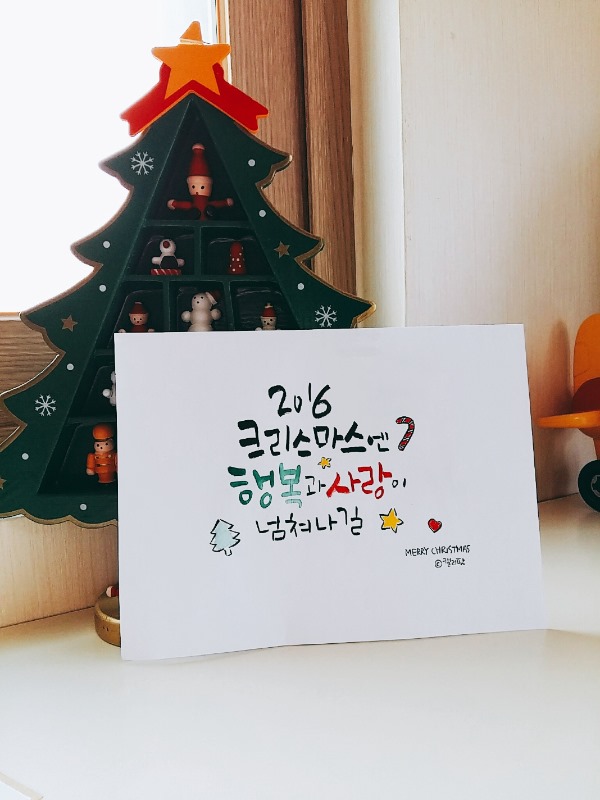 2016
크리스마스엔
행복과 사랑이
넘쳐나길
MERRY CHRISTMAS